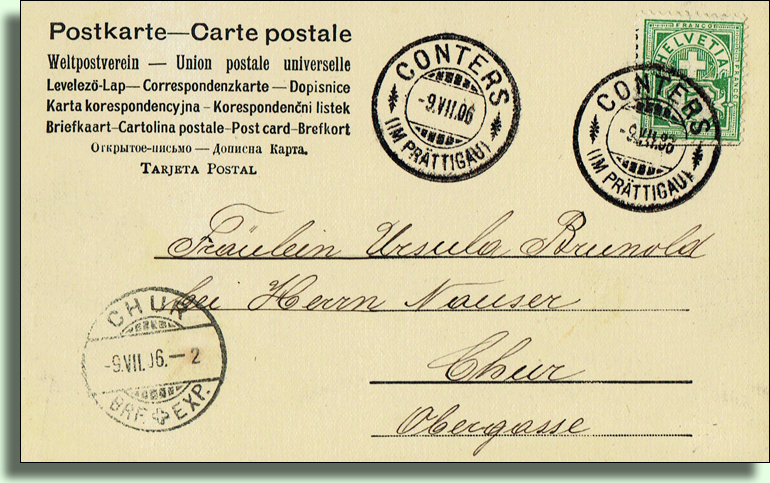 Postkarte—Carte postale
Weltpostverein — Union postale universelle
Levelező-Lap— Correspondenzkarte — Dopisnice
Karta korespondencyjna - Korespondenční listek
Briefkaart-Cartolina postale-Post card-Brefkort
Открытое-письмо — Дописна Карта.
TARJETA POSTAL
CONTERS
-9.VII.06
(IM PRÄTTIGAU)
FRANCO
HELVETIA
CONTERS
-9.VII.06
(IM PRÄTTIGAU)
Fräulein Ursula Brunold
bei Herrn Nauser
Chur
Obergasse
CHUR
-9.VII.06.— 2
BRF. EXP.